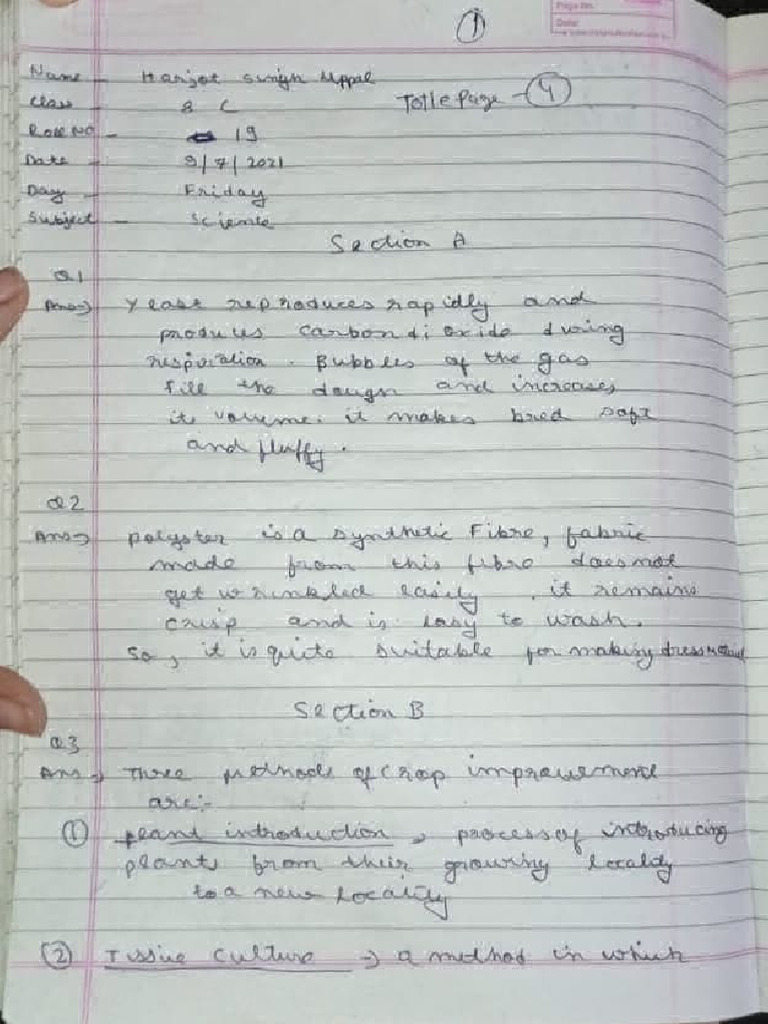 ①
Page No.
Date:
Name - Harjot Singh Uppal
Class - 8 C Totle Page - ④
Roll No - 19
Date - 9/7/2021
Day - Friday
Subject - Science
Section A
Q1
Ans→ Yeast reproduces rapidly and
produces carbon di oxide during
respiration. Bubbles of the gas
fill the dough and increases
it volume. it makes bred soft
and fluffy.
Q2
Ans→ polyster is a synthetic Fibre, fabric
made from this fibre does not
get wrinkled easily. it remains
crisp and is easy to wash.
So, it is quite suitable for making dress
Section B
Q3
Ans→ Three methods of crop improvement
are:-
① plant introduction, process of introducing
plants from their growing locality
to a new locality
② Tissue culture → a method in which